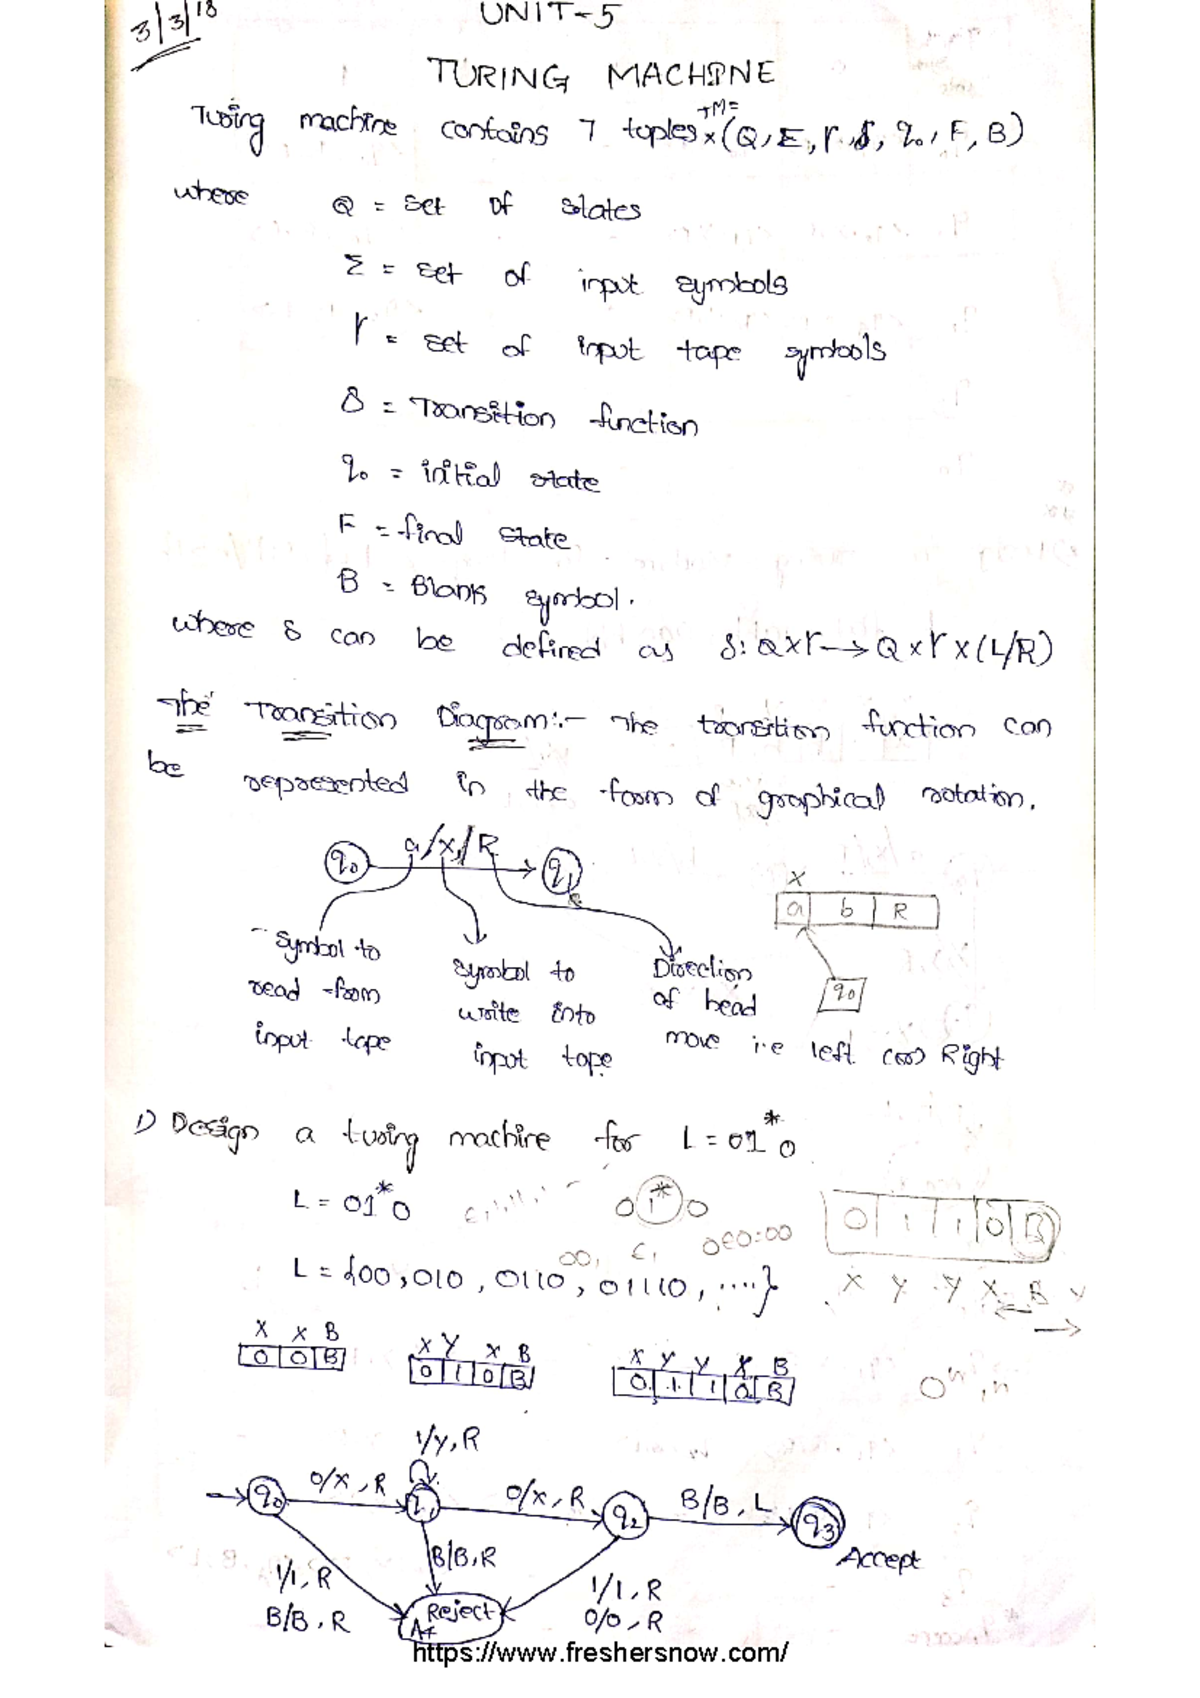 3/3/18
UNIT-5
TURING MACHINE
Turing machine contains 7 tuples TM= (Q, Σ, Γ, δ, q0, F, B)
where Q = set of states
Σ = set of input symbols
Γ = set of input tape symbols
δ = Transition function
q0 = initial state
F = final state
B = Blank symbol.
where δ can be defined as δ: Q×Γ → Q×Γ×(L/R)
The Transition Diagram:- The transition function can
be represented in the form of graphical notation.
q0 a/x/R q1
X
a b R
q0
Symbol to
read from
input tape
symbol to
write into
input tape
Direction
of head
move i.e left (or) Right
1) Design a turing machine for L = 01*0
L = 01*0
0 1* 0
0 1 1 0 B
X Y Y X B
00, ε,
0ε0:00
L = {00, 010, 0110, 01110, ....}
X X B
0 0 B
X Y X B
0 1 0 B
X Y Y X B
0 1 1 0 B
1/Y, R
q0 0/X, R q1 0/X, R q2 B/B, L q3
Accept
1/1, R
B/B, R
B/B, R
1/1, R
0/0, R
Reject
https://www.freshersnow.com/